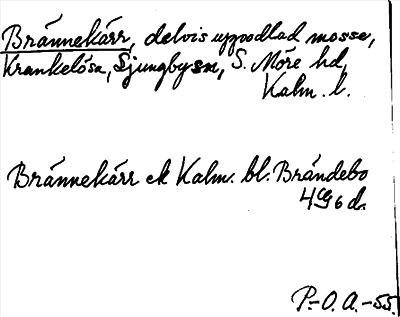 Brännekärr, delvis uppodlad mosse,
Krankelösa, Ljungby sn, S. Möre hd,
Kalm. l.
Brännekärr ek Kalm. bl. Brändebo
4 G 6 d.
P.-O. A. -55.